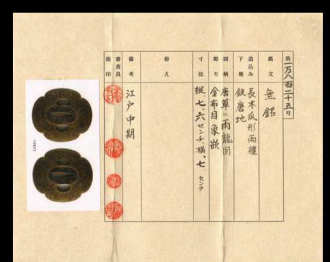 第一万八百二十五号
銘文
無銘
造込み
長木瓜形両櫃
下地
鉄磨地
図柄
唐草に雨龍図
飾り
金布目象嵌
寸法
縦七、六センチ横、七センチ
拵え
備考
江戸中期
審査員